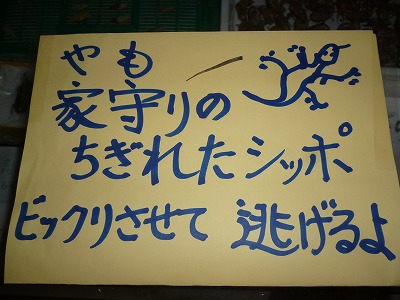 やも
家守りの
ちぎれたシッポ
ビックリさせて 逃げるよ